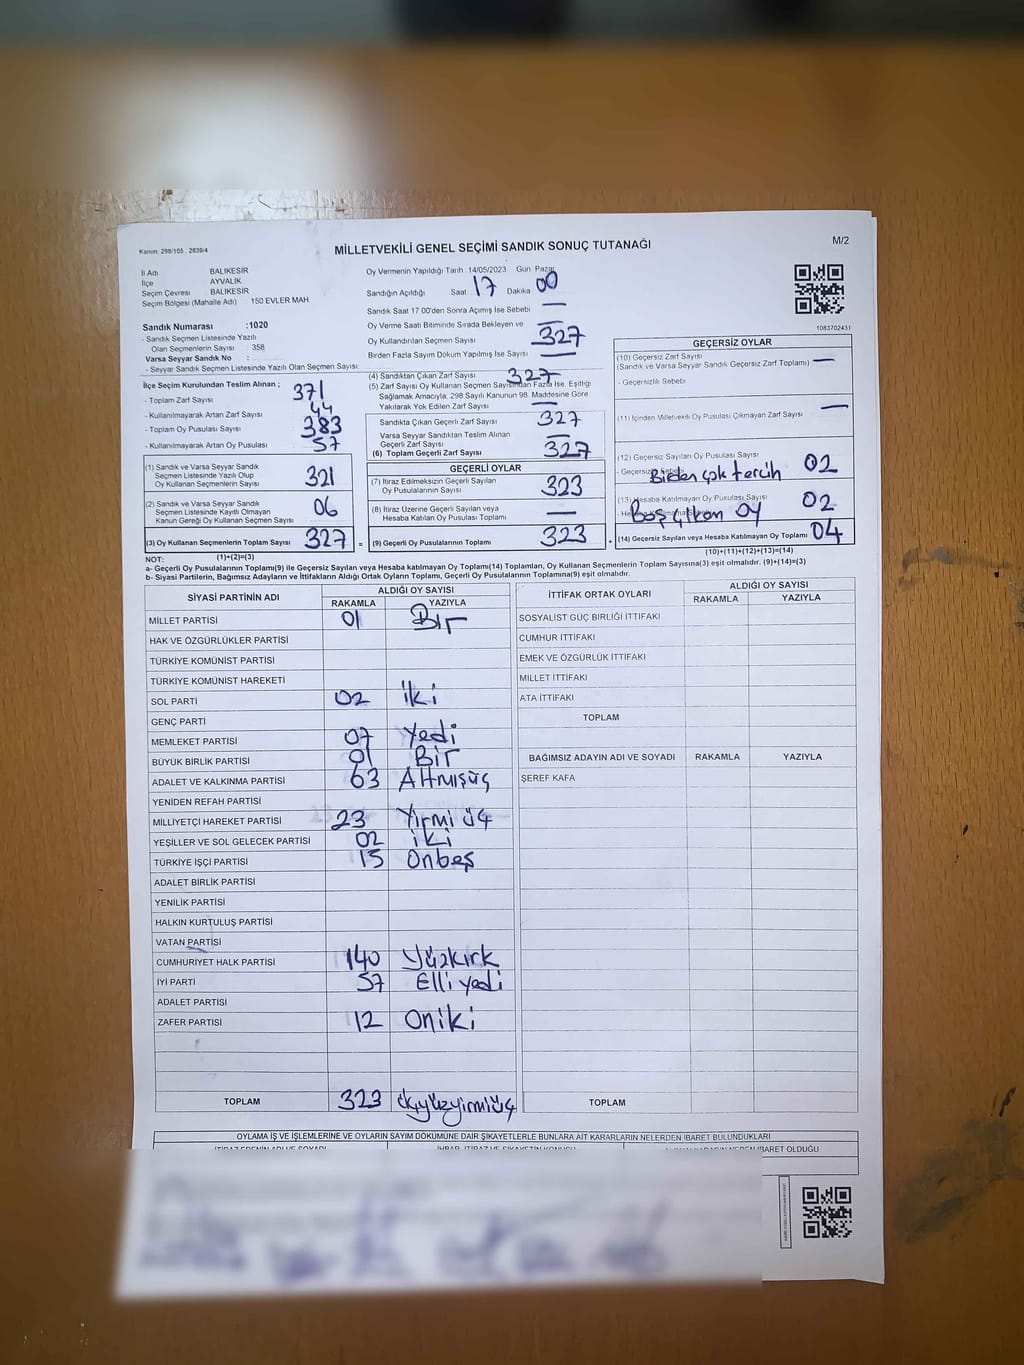 Kanun: 298/105 , 2839/4
MİLLETVEKİLİ GENEL SEÇİMİ SANDIK SONUÇ TUTANAĞI
M/2
İl Adı BALIKESİR
İlçe AYVALIK
Seçim Çevresi BALIKESİR
Seçim Bölgesi (Mahalle Adı) 150 EVLER MAH
Sandık Numarası :1020
- Sandık Seçmen Listesinde Yazılı
Olan Seçmenlerin Sayısı 358
Varsa Seyyar Sandık No :
- Seyyar Sandık Seçmen Listesinde Yazılı Olan Seçmen Sayısı
Oy Vermenin Yapıldığı Tarih 14/05/2023 Gün Pazar
Sandığın Açıldığı Saat 17 Dakika 00
Sandık Saat 17 00'den Sonra Açımış İse Sebebi —
Oy Verme Saati Bitiminde Sırada Bekleyen ve —
Oy Kullandırılan Seçmen Sayısı 327
Birden Fazla Sayım Döküm Yapılmış İse Sayısı —
1083702431
İlçe Seçim Kurulundan Teslim Alınan ;
- Toplam Zarf Sayısı 371
- Kullanılmayarak Artan Zarf Sayısı 44
- Toplam Oy Pusulası Sayısı 383
- Kullanılmayarak Artan Oy Pusulası 57
(1) Sandık ve Varsa Seyyar Sandık
Seçmen Listesinde Yazılı Olup
Oy Kullanan Seçmenlerin Sayısı 321
(2) Sandık ve Varsa Seyyar Sandık
Seçmen Listesinde Kayıtlı Olmayan
Kanun Gereği Oy Kullanan Seçmen Sayısı 06
(3) Oy Kullanan Seçmenlerin Toplam Sayısı 327 =
(1)+(2)=(3)
(4) Sandıktan Çıkan Zarf Sayısı 327
(5) Zarf Sayısı Oy Kullanan Seçmen Sayısından Fazla İse, Eşitliği
Sağlamak Amacıyla, 298 Sayılı Kanunun 98. Maddesine Göre
Yakılarak Yok Edilen Zarf Sayısı —
Sandıkta Çıkan Geçerli Zarf Sayısı 327
Varsa Seyyar Sandıktan Teslim Alınan
Geçerli Zarf Sayısı —
(6) Toplam Geçerli Zarf Sayısı 327
GEÇERLİ OYLAR
(7) İtiraz Edilmeksizin Geçerli Sayılan
Oy Pusulalarının Sayısı 323
(8) İtiraz Üzerine Geçerli Sayılan veya
Hesaba Katılan Oy Pusulası Toplamı —
(9) Geçerli Oy Pusulalarının Toplamı 323 +
GEÇERSİZ OYLAR
(10) Geçersiz Zarf Sayısı —
(Sandık ve Varsa Seyyar Sandık Geçersiz Zarf Toplamı)
- Geçersizlik Sebebi
(11) İçinden Milletvekili Oy Pusulası Çıkmayan Zarf Sayısı —
(12) Geçersiz Sayılan Oy Pusulası Sayısı 02
- Geçersizlik Sebebi Birden çok tercih
(13) Hesaba Katılmayan Oy Pusulası Sayısı 02
Boş çıkan oy
(14) Geçersiz Sayılan veya Hesaba Katılmayan Oy Toplamı 04
(10)+(11)+(12)+(13)=(14)
NOT:
a- Geçerli Oy Pusulalarının Toplamı(9) ile Geçersiz Sayılan veya Hesaba katılmayan Oy Toplamı(14) Toplamları, Oy Kullanan Seçmenlerin Toplam Sayısına(3) eşit olmalıdır. (9)+(14)=(3)
b- Siyasi Partilerin, Bağımsız Adayların ve İttifakların Aldığı Ortak Oyların Toplamı, Geçerli Oy Pusulalarının Toplamına(9) eşit olmalıdır.
SİYASİ PARTİNİN ADI ALDIĞI OY SAYISI
RAKAMLA YAZIYLA
MİLLET PARTİSİ 01 Bir
HAK VE ÖZGÜRLÜKLER PARTİSİ
TÜRKİYE KOMÜNİST PARTİSİ
TÜRKİYE KOMÜNİST HAREKETİ
SOL PARTİ 02 iki
GENÇ PARTİ
MEMLEKET PARTİSİ 07 Yedi
BÜYÜK BİRLİK PARTİSİ 01 Bir
ADALET VE KALKINMA PARTİSİ 63 Altmışüç
YENİDEN REFAH PARTİSİ
MİLLİYETÇİ HAREKET PARTİSİ 23 Yirmi üç
YEŞİLLER VE SOL GELECEK PARTİSİ 02 iki
TÜRKİYE İŞÇİ PARTİSİ 15 Onbeş
ADALET BİRLİK PARTİSİ
YENİLİK PARTİSİ
HALKIN KURTULUŞ PARTİSİ
VATAN PARTİSİ
CUMHURİYET HALK PARTİSİ 140 Yüzkırk
İYİ PARTİ 57 Elli yedi
ADALET PARTİSİ
ZAFER PARTİSİ 12 Oniki
TOPLAM 323 üçyüzyirmiüç
İTTİFAK ORTAK OYLARI ALDIĞI OY SAYISI
RAKAMLA YAZIYLA
SOSYALİST GÜÇ BİRLİĞİ İTTİFAKI
CUMHUR İTTİFAKI
EMEK VE ÖZGÜRLÜK İTTİFAKI
MİLLET İTTİFAKI
ATA İTTİFAKI
TOPLAM
BAĞIMSIZ ADAYIN ADI VE SOYADI RAKAMLA YAZIYLA
ŞEREF KAFA
TOPLAM
OYLAMA İŞ VE İŞLEMLERİNE VE OYLARIN SAYIM DÖKÜMÜNE DAİR ŞİKAYETLERLE BUNLARA AİT KARARLARIN NELERDEN İBARET BULUNDUKLARI
İBARET OLDUĞU